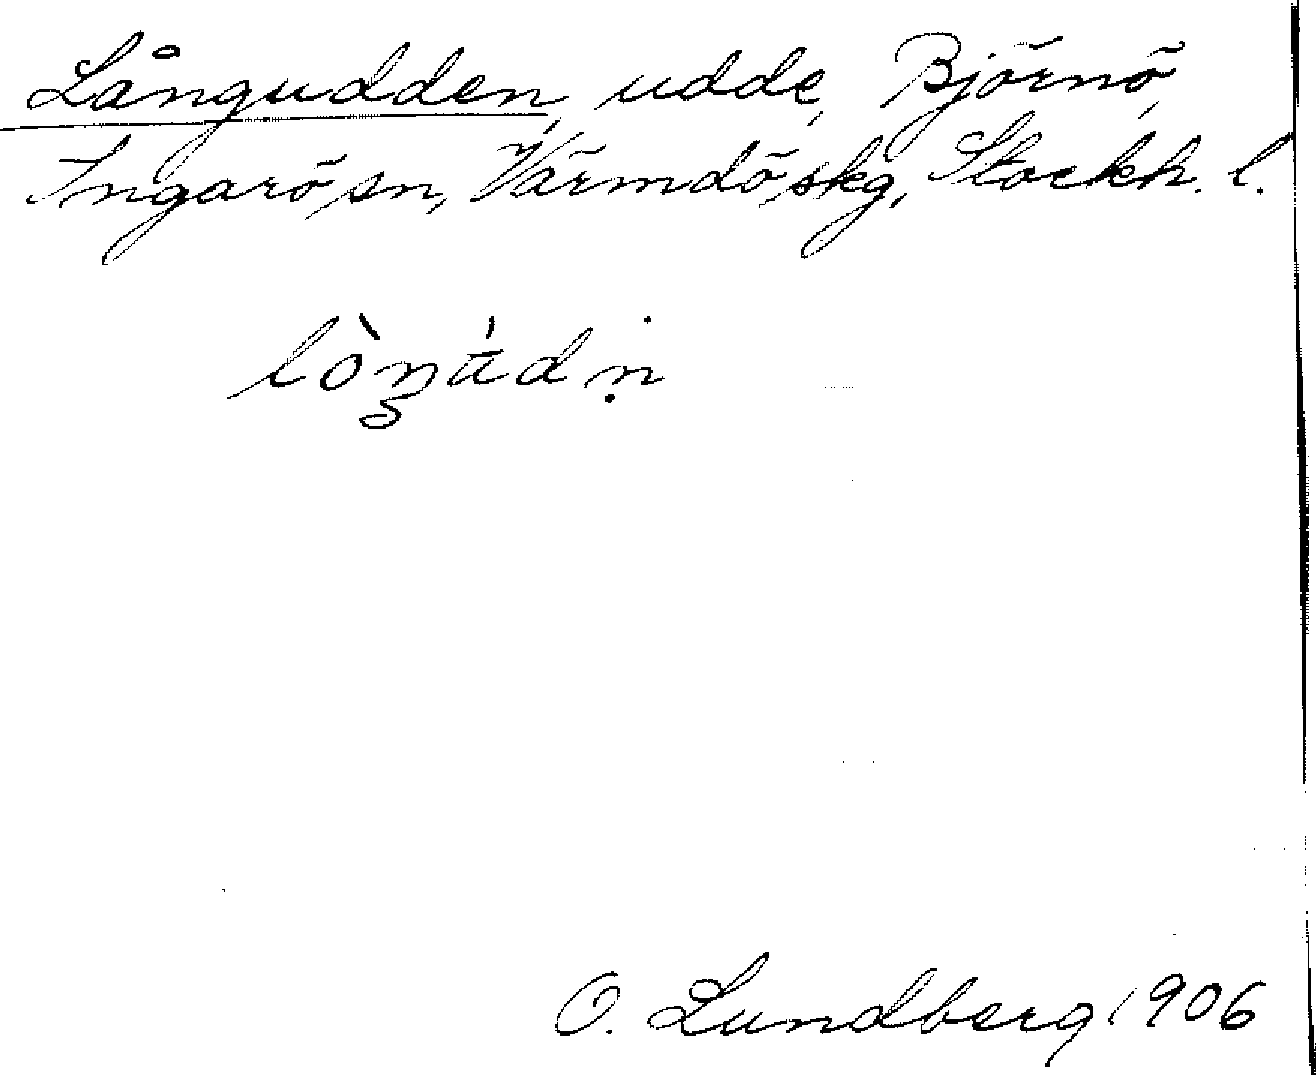 Långudden, udde, Björnö,
Ingarö sn, Värmdö skg, Stockh. l.
lòŋ̄ád ṇ
O. Lundberg 1906